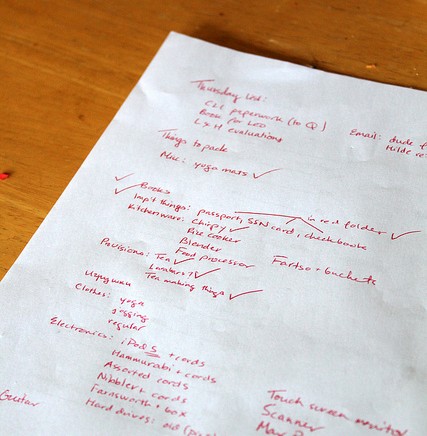 Thursday List:
CLL paperwork (to Q)
Book for Leo
L & H evaluations
Email: dude
Hilde re
Things to pack
Misc: yoga mats
Books
Imp't things: passport, SSN card, checkbooks
in red folder
Kitchenware: Chirpy
Rice cooker
Blender
Food processor
Provisions: Tea
Larabars?
Tea making things
Fartso + buckets
Игрушки
Clothes: yoga
jogging
regular
Electronics: iPods + cords
Hammurabi + cords
Assorted cords
Nibbler + cords
Farnsworth + box
Hard drives: old
Guitar
Touch screen monitor
Scanner
Mac